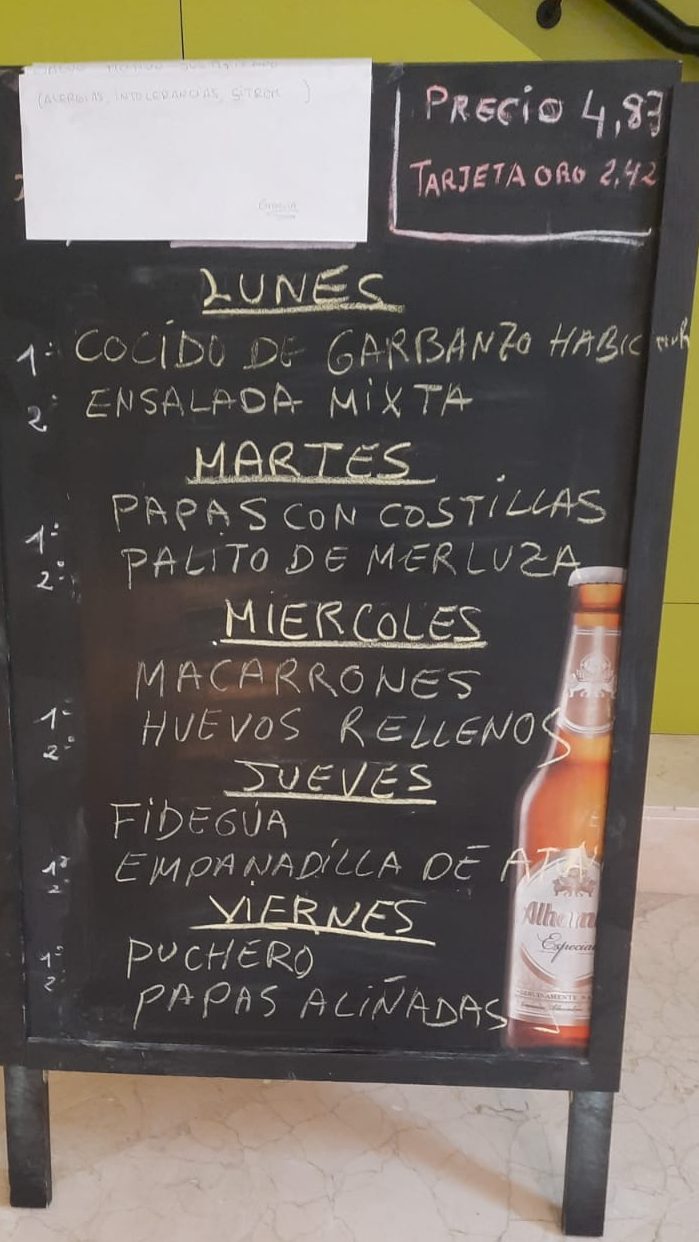 (ALERGIAS, INTOLERANCIAS, SITROM )
PRECIO 4,83
TARJETA ORO 2,42
LUNES
1º COCIDO DE GARBANZO HABIC
2º ENSALADA MIXTA
MARTES
1º PAPAS CON COSTILLAS
2º PALITO DE MERLUZA
MIERCOLES
1º MACARRONES
2º HUEVOS RELLENOS
JUEVES
1º FIDEGÚA
2º EMPANADILLA DE ATÚN
VIERNES
1º PUCHERO
2º PAPAS ALIÑADAS
Alham
Especial
GENUINAMENTE